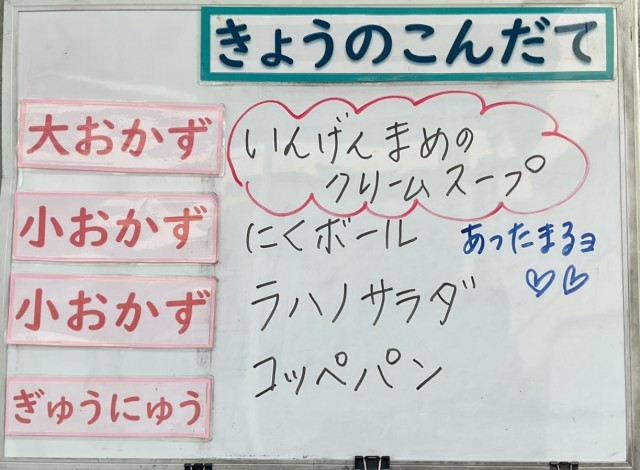 きょうのこんだて
大おかず
いんげんまめの
クリームスープ
小おかず
にくボール
あったまるヨ
♡♡
小おかず
ラハノサラダ
コッペパン
ぎゅうにゅう